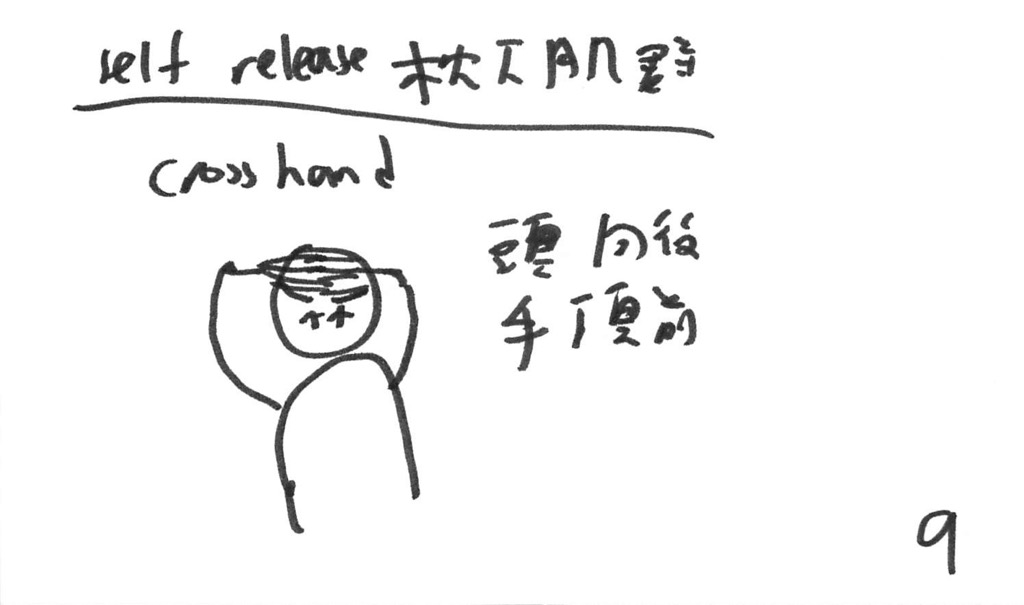 self release 枕下肌群
cross hand
頭向後
手頂前
9